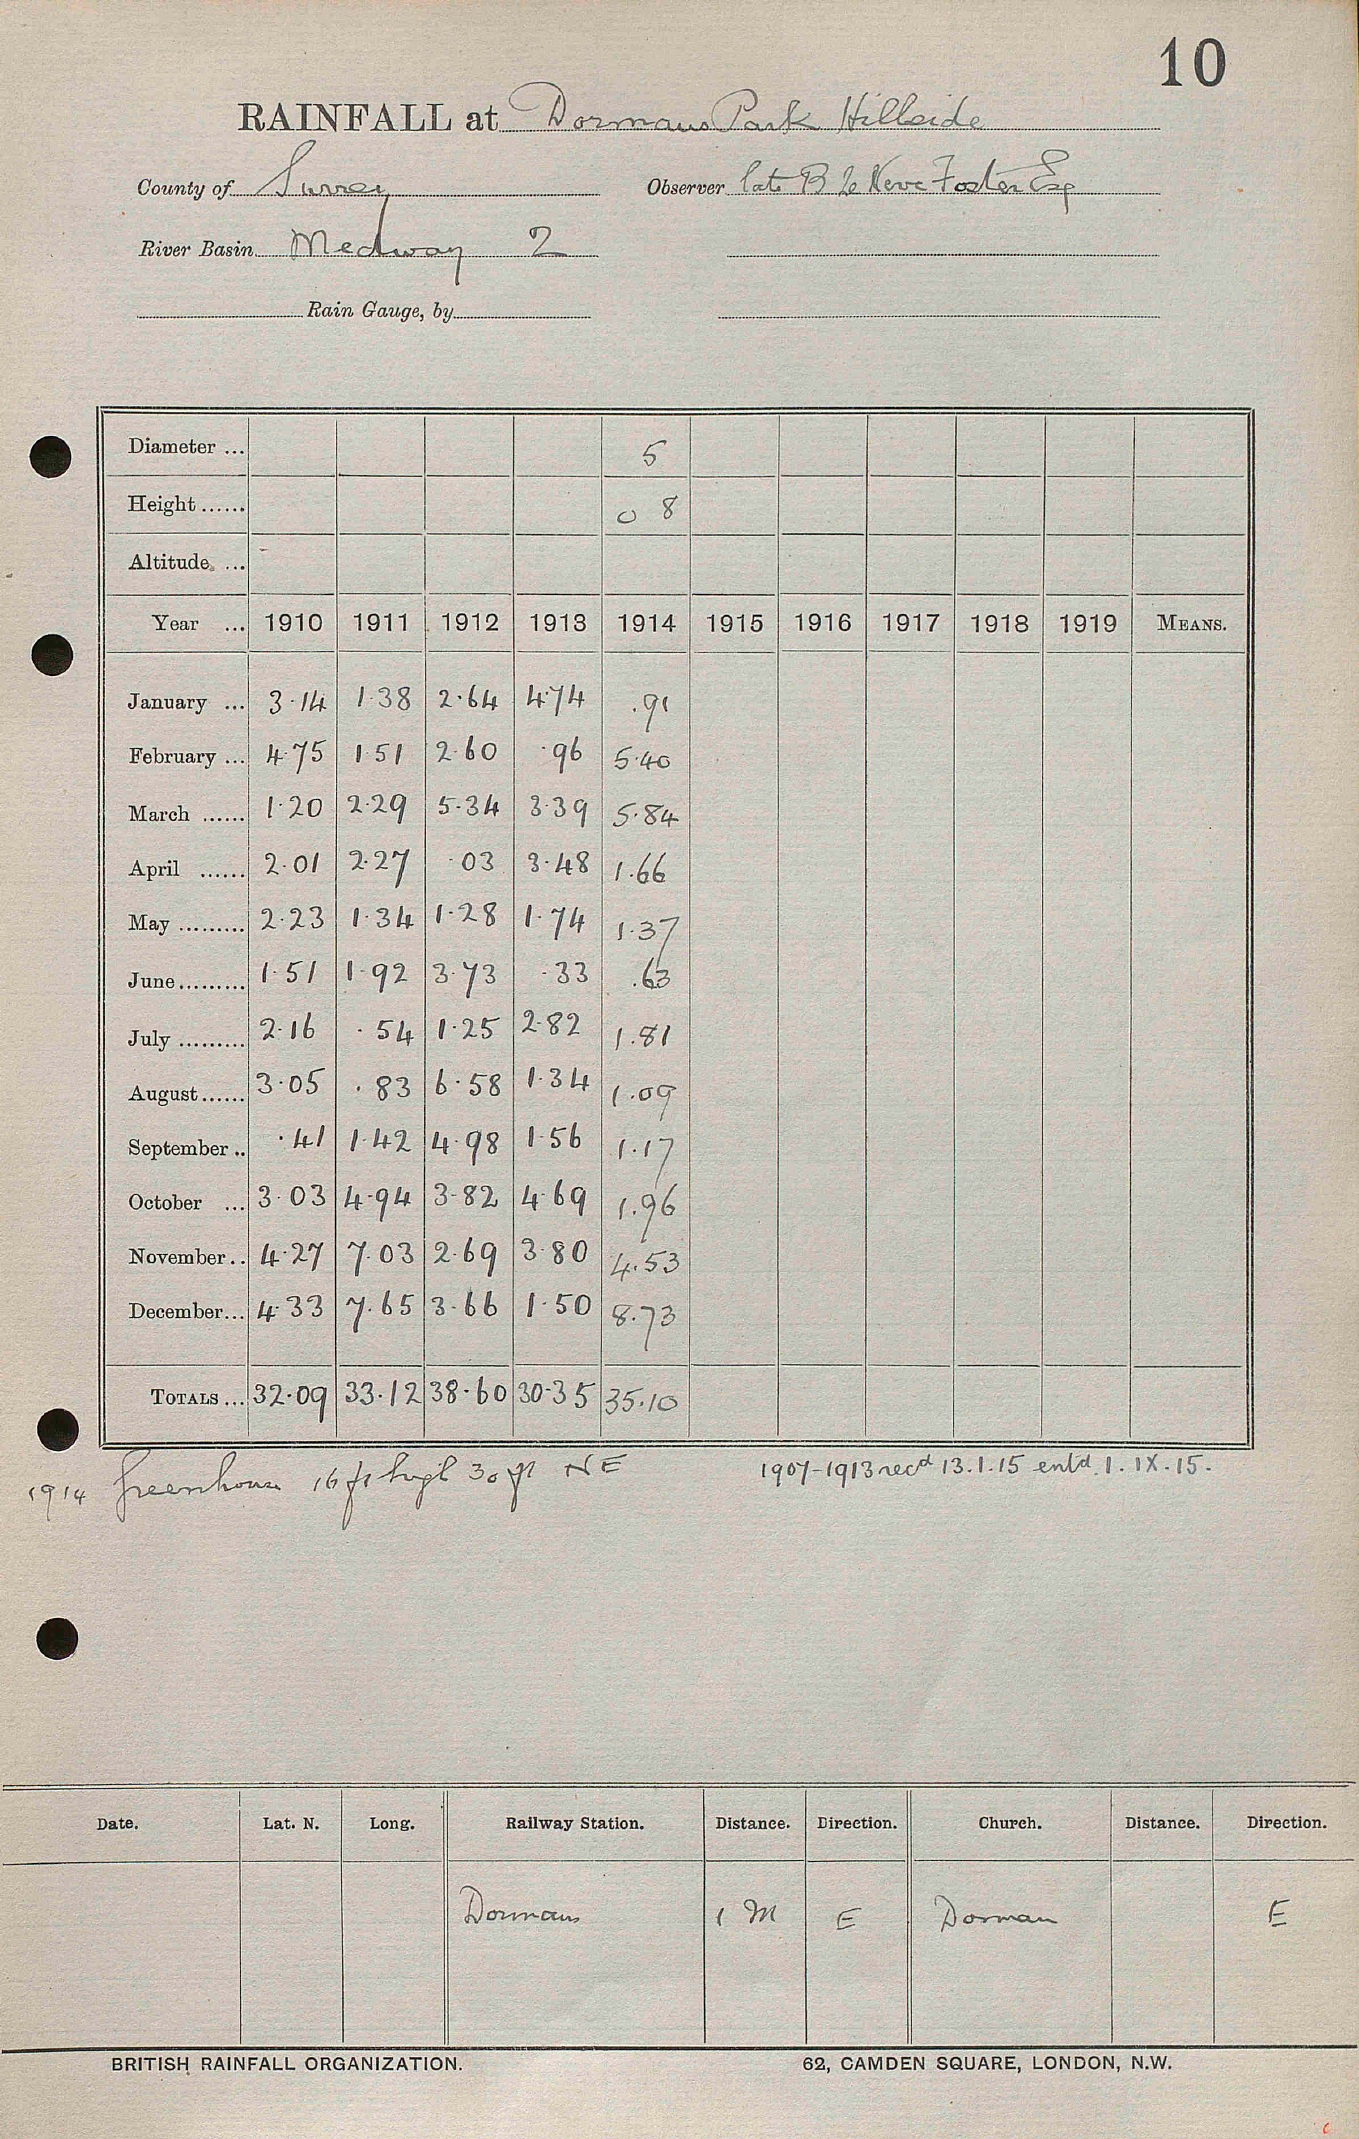 10
RAINFALL at Dormans Park Hillside
County of Surrey Observer late B Le Neve Foster Esq
River Basin Medway 2
Rain Gauge, by
Diameter ... 5
Height ...... 0 8
Altitude ...
Year ... 1910 1911 1912 1913 1914 1915 1916 1917 1918 1919 MEANS.
January ... 3.14 1.38 2.64 4.74 .91
February ... 4.75 1.51 2.60 .96 5.40
March ...... 1.20 2.29 5.34 3.39 5.84
April ...... 2.01 2.27 .03 3.48 1.66
May ......... 2.23 1.34 1.28 1.74 1.37
June ......... 1.51 1.92 3.73 .33 .63
July ......... 2.16 .54 1.25 2.82 1.81
August ...... 3.05 .83 6.58 1.34 1.09
September .. .41 1.42 4.98 1.56 1.17
October ... 3.03 4.94 3.82 4.69 1.96
November .. 4.27 7.03 2.69 3.80 4.53
December ... 4.33 7.65 3.66 1.50 8.73
TOTALS ... 32.09 33.12 38.60 30.35 35.10
1914 Greenhouse 16 ft high 30 ft NE 1907-1913 recd 13.1.15 entd. 1.IX.15.
Date. Lat. N. Long. Railway Station. Distance. Direction. Church. Distance. Direction.
Dormans 1 M E Dorman E
BRITISH RAINFALL ORGANIZATION. 62, CAMDEN SQUARE, LONDON, N.W.